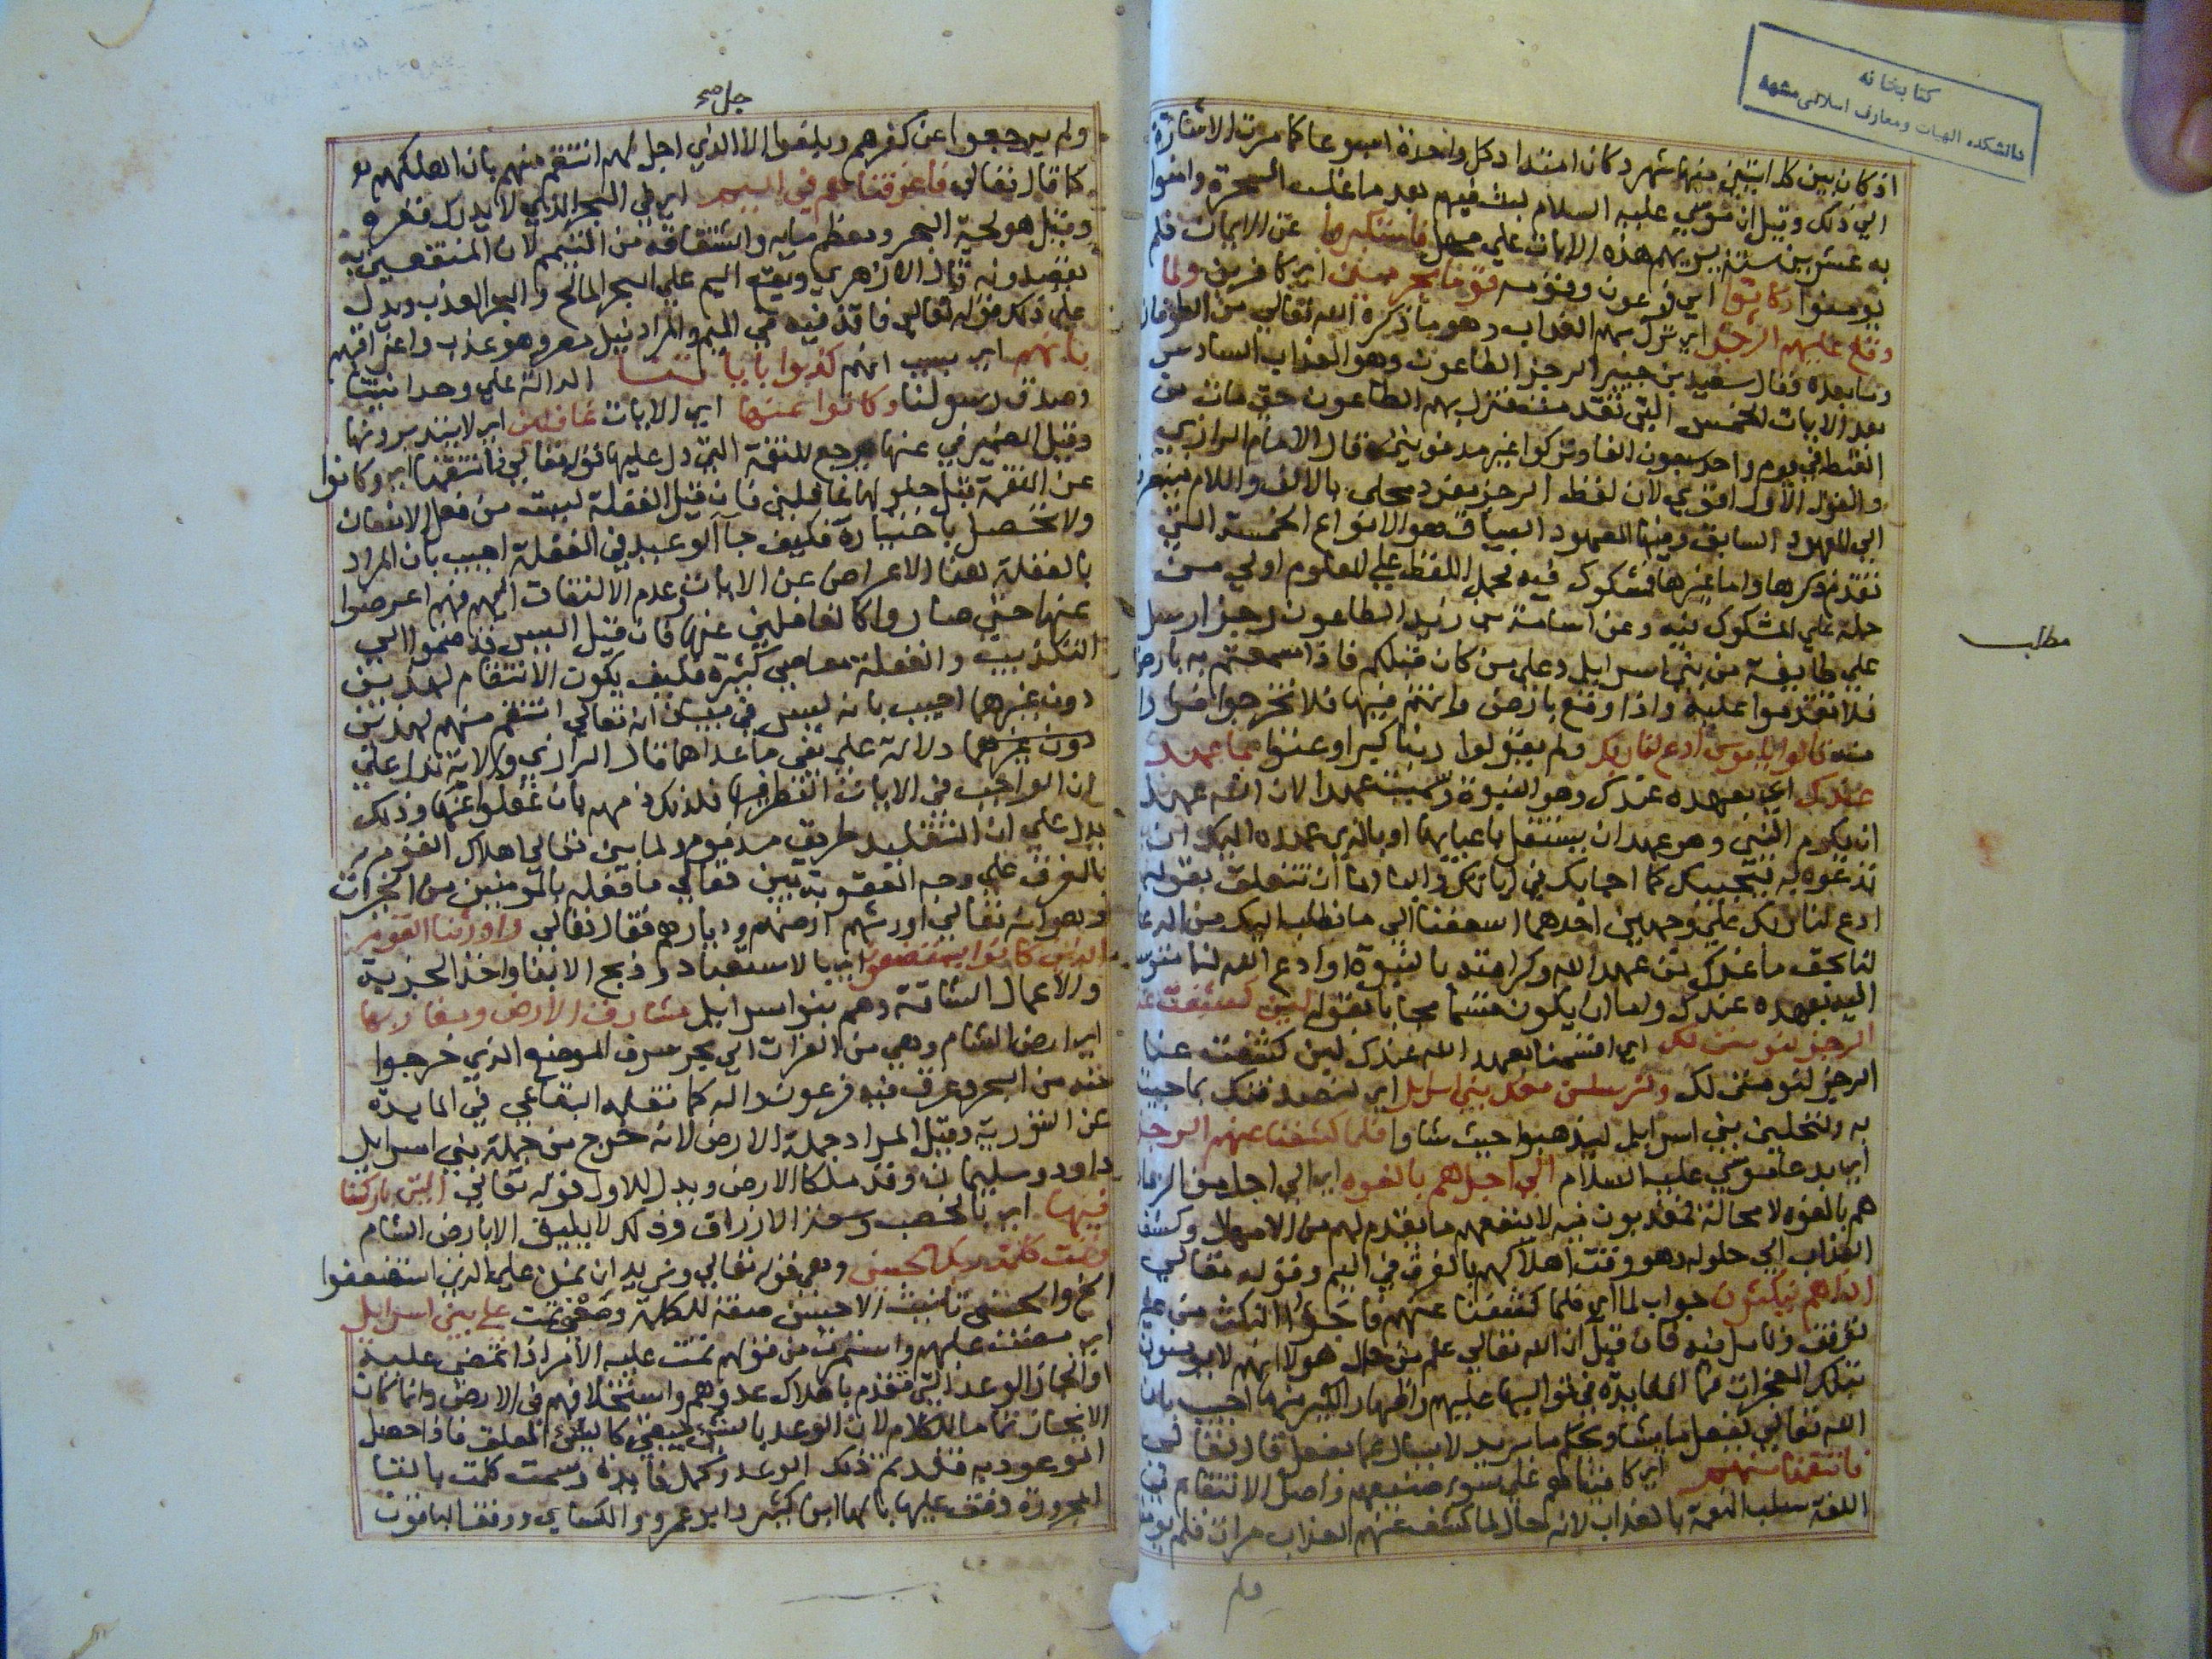 كتابخانه
دانشكده الهيات ومعارف اسلامى مشهد
اذ كان بين كل اثنين منها شهر وكان امتداد كل واحدة اسبوعا كما مرت الاشارة
الي ذلك وقيل ان موسي عليه السلام لبث فيهم بعد ما غلب السحرة وامنوا
به عشرين سنة يريهم هذه الايات علي مهل فاستكبروا عن الايمان فلم
يومنوا وكانوا اي فرعون وقومه قوما مجرمين اي كافرين ولما
وقع عليهم الرجز اي نزل بهم العذاب وهو ما ذكره الله تعالي من الطوفان
وما بعده وقال سعيد بن جبير الرجز الطاعون وهو العذاب السادس
بعد الايات الخمس التي تقدمت فنزل بهم الطاعون حتي مات من
القبط في يوم واحد سبعون الفا وتركوا غير مدفونين قال الامام الرازي
والقول الاول اقوي لان لفظ الرجز مفرد محلي بالالف واللام فينصرف
الي المعهود السابق وهنا المعهود السابق هو الانواع الخمسة التي
تقدم ذكرها واما غيرها فمشكوك فيه فحمل اللفظ علي المعلوم اولي من
حمله علي المشكوك فيه وعن اسامة بن زيد الطاعون رجز ارسل
علي طايفة من بني اسرايل وعلي من كان قبلكم فاذا سمعتم به بارض
فلا تقدموا عليه واذا وقع بارض وانتم فيها فلا تخرجوا فرارا
منه قالوا يا موسي ادع لنا ربك ولم يقولوا ربنا كبرا وعتوا بما عهد
عندك اي بعهده عندك وهو النبوة وسميت عهدا لان الله عهد
ان يكرم النبي وهو عهد ان يستقل باعبايها او بالذي عهده اليك ان
تدعوه به فيجيبك كما اجابك في اياتك والباء اما ان تتعلق بقوله
ادع لنا ربك علي وجهين احدهما اسعفنا الي ما نطلب اليك من الدعا
لنا بحق ما عندك من عهد الله وكرامته بالنبوة او ادع الله لنا متوسلا
اليه بعهده عندك واما ان يكون قسما مجابا بقوله لين كشفت عنا
الرجز لنومنن لك اي اقسمنا بعهد الله عندك لين كشفت عنا
الرجز لنومنن لك ولنرسلن معك بني اسرايل اي لنصدقنك بما جيت
به ولنخلين بني اسرايل ليذهبوا حيث شاوا فلما كشفنا عنهم الرجز
اي بدعا موسي عليه السلام الي اجل هم بالغوه اي الي اجل من الزمان
هم بالغوه لا محالة فمعذبون فيه لا ينفعهم ما تقدم لهم من الامهال وكشف
العذاب الي حلوله وهو وقت اهلاكهم بالغرق في اليم وقوله تعالي
اذا هم ينكثون جواب لما اي فلما كشفنا عنهم فاجوا النكث من غير
توقف وتامل فيه فان قيل ان الله تعالي علم من حال هولا انهم لا يومنون
بتلك المعجزات فما الفايدة في تواليها عليهم واظهار الكثير منها اجيب بان
الله تعالي يفعل ما يشا ويحكم ما يريد لا يسال عما يفعل قال تعالي
فانتقمنا منهم اي كافيناهم علي سوء صنيعهم واصل الانتقام في
اللغة سلب النعمة بالعذاب لانه تعالي لما كشف عنهم العذاب مرات فلم يومنوا
ولم
مطلب
ولم يرجعوا عن كفرهم وبلغوا الاجل الذي اجل لهم انتقم منهم بان اهلكهم
كما قال تعالي فاغرقناهم في اليم اي في البحر الذي لا يدرك قعره
وقيل هو لجة البحر ومعظم مايه واشتقاقه من التيمم لان المنتفعين به
يقصدونه قال الازهري ويقع اليم علي البحر المالح والبحر العذب ويدل
علي ذلك قوله تعالي فاقذفيه في اليم والمراد نيل مصر وهو عذب واغراقهم
بانهم اي بسبب انهم كذبوا باياتنا الدالة علي وحدانيتنا
وصدق رسولنا وكانوا عنها اي الايات غافلين اي لا يتدبرونها
وقيل الضمير في عنها يرجع للنقمة التي دل عليها قوله تعالي فانتقمنا اي وكانوا
عن النقمة قبل حلولها غافلين فان قيل الغفلة ليست من فعل الانسان
ولا تحصل باختياره فكيف جآ الوعيد في الغفلة اجيب بان المراد
بالغفلة هنا الاعراض عن الايات وعدم الالتفات اليها فهم اعرضوا
عنها حتي صاروا كالغافلين عنها فان قيل اليس قد ضموا الي
التكذيب والغفلة معاصي كثيرة فكيف يكون الانتقام لهذين
دون غيرهما اجيب بانه ليس في بيان انه تعالي انتقم منهم لهذين
دون غيرهما دلالة علي نفي ما عداهما قال الرازي والاية تدل علي
ان الواجب في الايات النظر فيها فلذلك ذمهم بان غفلوا عنها وذلك
يدل علي ان التقليد طريق مذموم ولما بين تعالي اهلاك القوم
بالغرق علي وجه العقوبة بين تعالي ما فعله بالمومنين من الخيرات
وهو انه تعالي اورثهم ارضهم وديارهم فقال تعالي واورثنا القوم
الذين كانوا يستضعفون اي بالاستعباد وذبح الابنا واخذ الجزية
والاعمال الشاقة وهم بنوا اسرايل مشارق الارض ومغاربها
اي ارض الشام وهي من الفرات الي بحر سوف الموضع الذي خرجوا
منه من البحر وغرق فيه فرعون واله كما نقله البقاعي في المايدة
عن التورية وقيل المراد جملة الارض لانه خرج من جملة بني اسرايل
داود وسليمان وقد ملكا الارض ويدل للاول قوله تعالي التي باركنا
فيها اي بالخصب وسعة الارزاق وذلك لا يليق الا بارض الشام
وتمت كلمة ربك الحسني وهي قوله تعالي ونريد ان نمن علي الذين استضعفوا
الخ والحسني تانيث الاحسن صفة للكلمة ومعني تمت علي بني اسرايل
اي مضت عليهم واستمرت من قولهم تمت عليه الامر اذا مضي عليه
او انجاز الوعد الذي تقدم باهلاك عدوهم واستخلافهم في الارض وانما كان
الانجاز تماما للكلام لان الوعد بالشي يبقي كالشي المعلق فاذا حصل
الموعود به فقد تم ذلك الوعد وكمل فايدة رسمت كلمت بالتا
المجرورة وقف عليها بالها ابن كثير وابو عمرو والكسائي ووقف الباقون